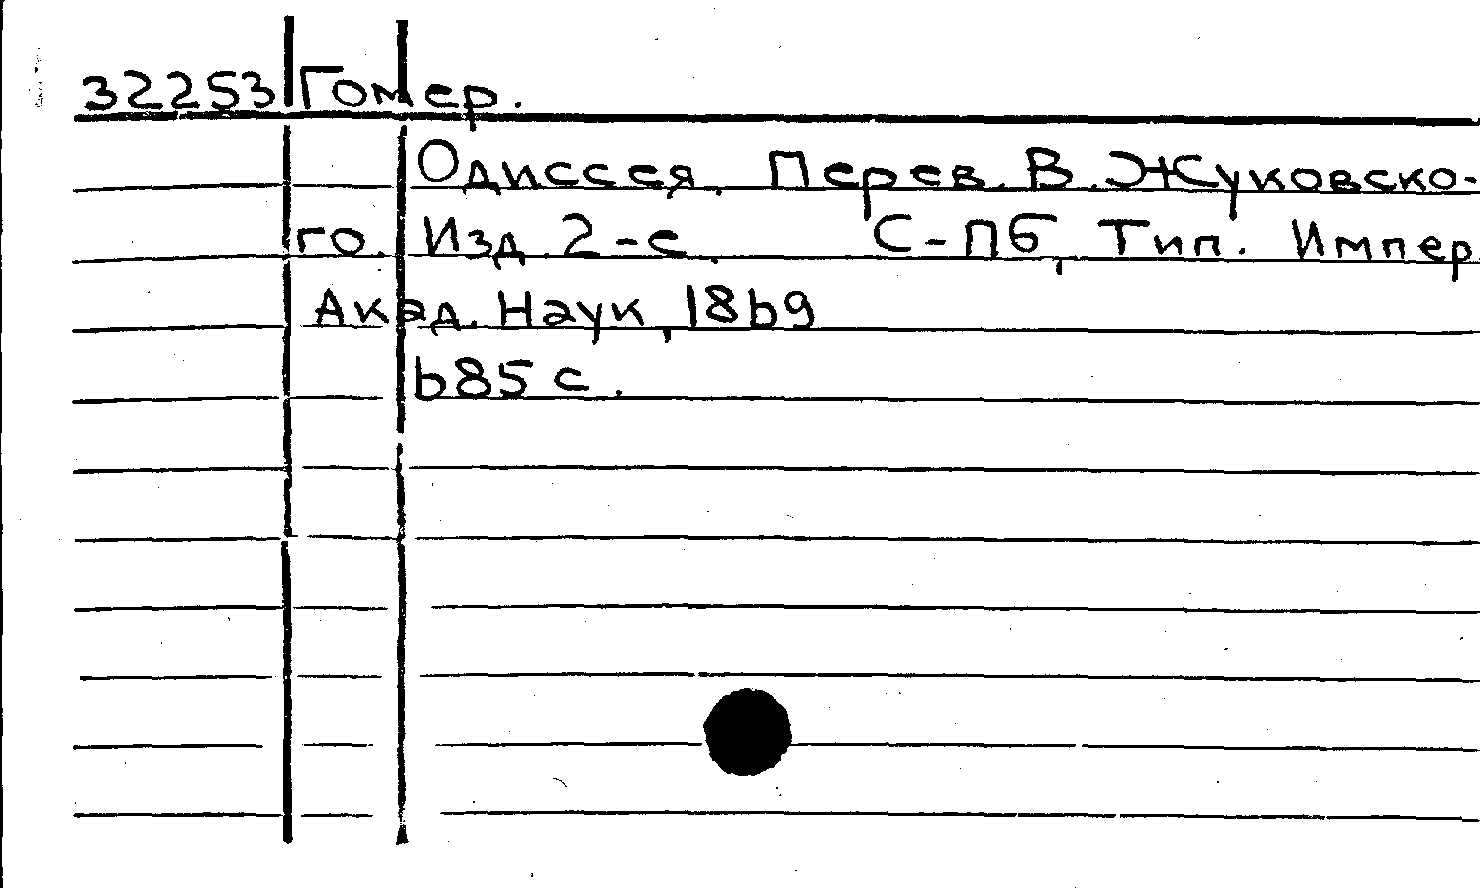 32253 Гомер.
Одиссея. Перев. В. Жуковско-
го. Изд. 2-е. С-Пб, Тип. Импер.
Акад. Наук, 1869
685 с.